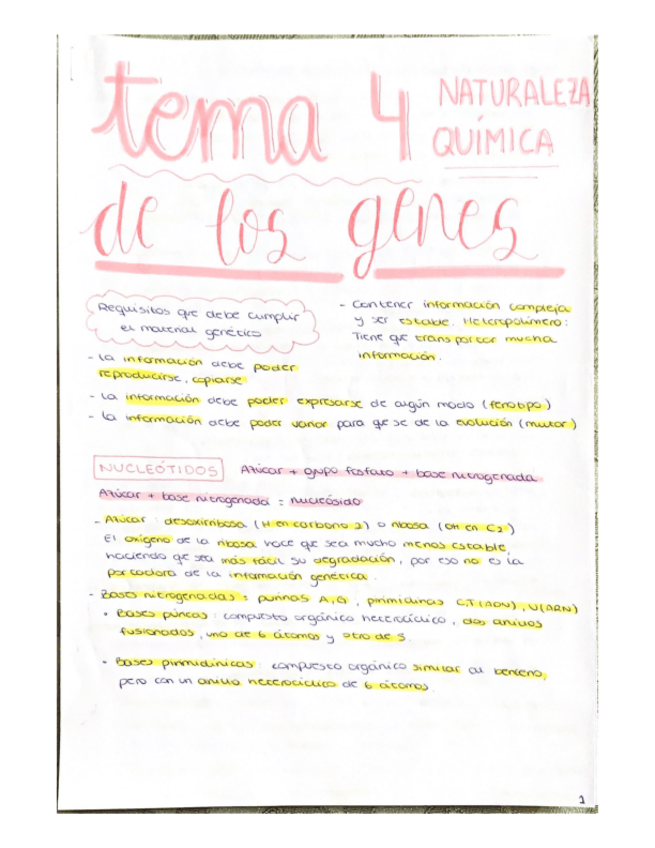 tema 4 NATURALEZA
QUÍMICA
de los genes
Requisitos que debe cumplir
el material genético
- Contener información compleja
y ser estable. Heteropolímero:
Tiene que transportar mucha
información.
- La información debe poder
reproducirse, copiarse
- La información debe poder expresarse de algún modo (fenotipo)
- La información debe poder variar para que se de la evolución (mutar)
NUCLEÓTIDOS Azúcar + grupo fosfato + base nitrogenada
Azúcar + base nitrogenada = nucleósido
- Azúcar: desoxirribosa (H en carbono 2) o ribosa (OH en C2)
El oxígeno de la ribosa hace que sea mucho menos estable,
haciendo que sea más fácil su degradación, por eso no es la
portadora de la información genética.
- Bases nitrogenadas: purinas A,G, pirimidinas C,T (ADN), U (ARN)
• Bases púricas: compuesto orgánico heterocíclico, dos anillos
fusionados, uno de 6 átomos y otro de 5.
• Bases pirimidínicas: compuesto orgánico similar al benceno,
pero con un anillo heterocíclico de 6 átomos.
1